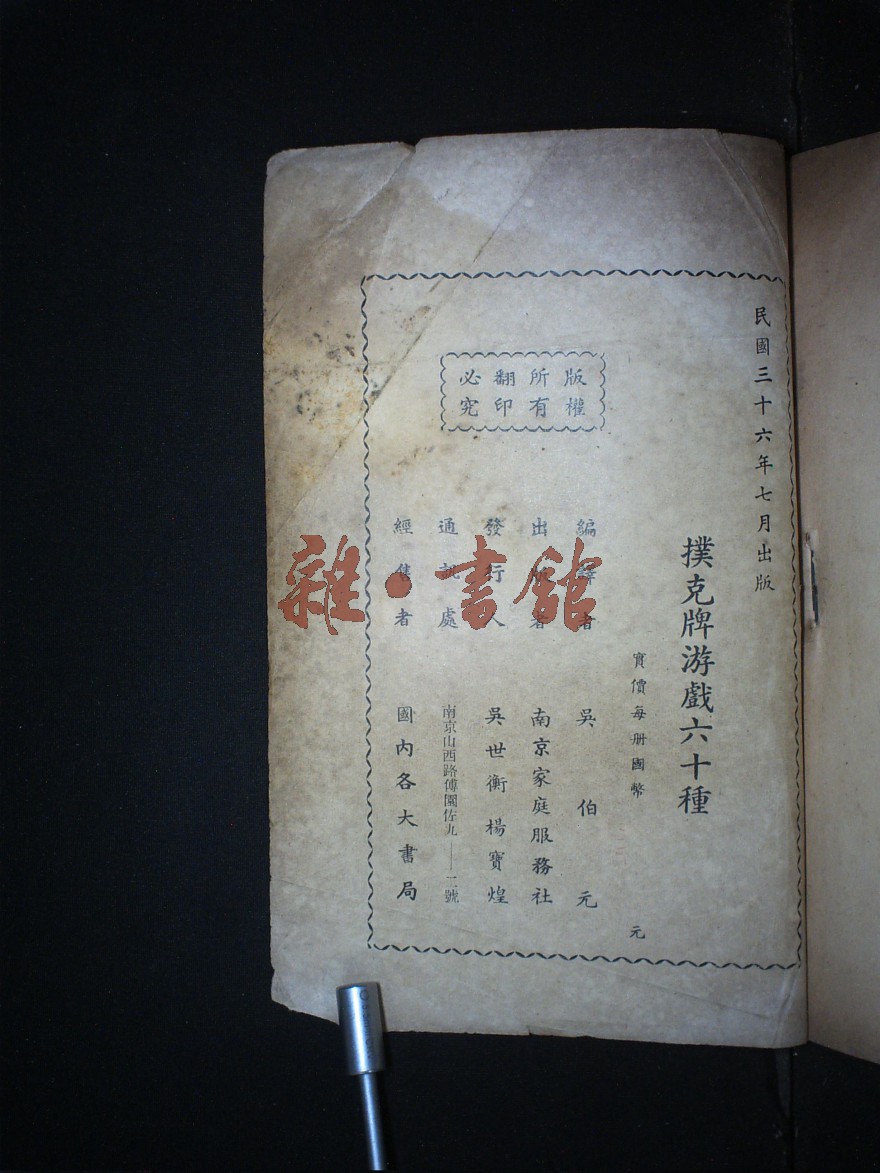 民國三十六年七月出版
撲克牌游戲六十種
實價每册國幣 元
版權
所有
翻印
必究
編譯者 吳伯元
出版者 南京家庭服務社
發行人 吳世衡 楊寶煌
通訊處 南京山西路傅園佐九——二號
經售者 國內各大書局
雜·書館